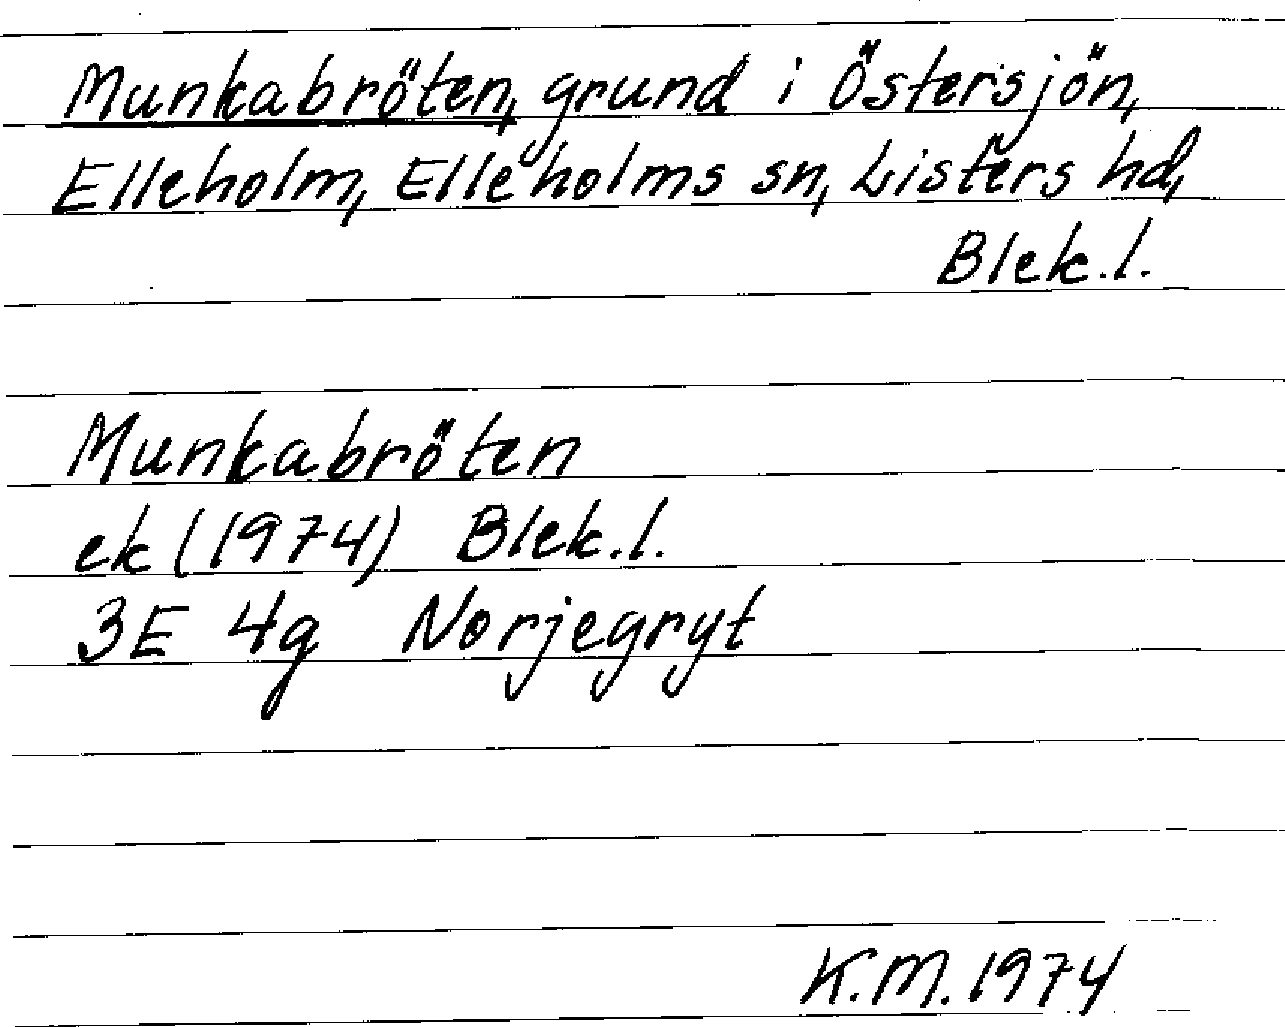 Munkabröten, grund i Östersjön,
Elleholm, Elleholms sn, Listers hd,
Blek.l.
Munkabröten
ek (1974) Blek.l.
3E 4g Norjegryt
K.M. 1974